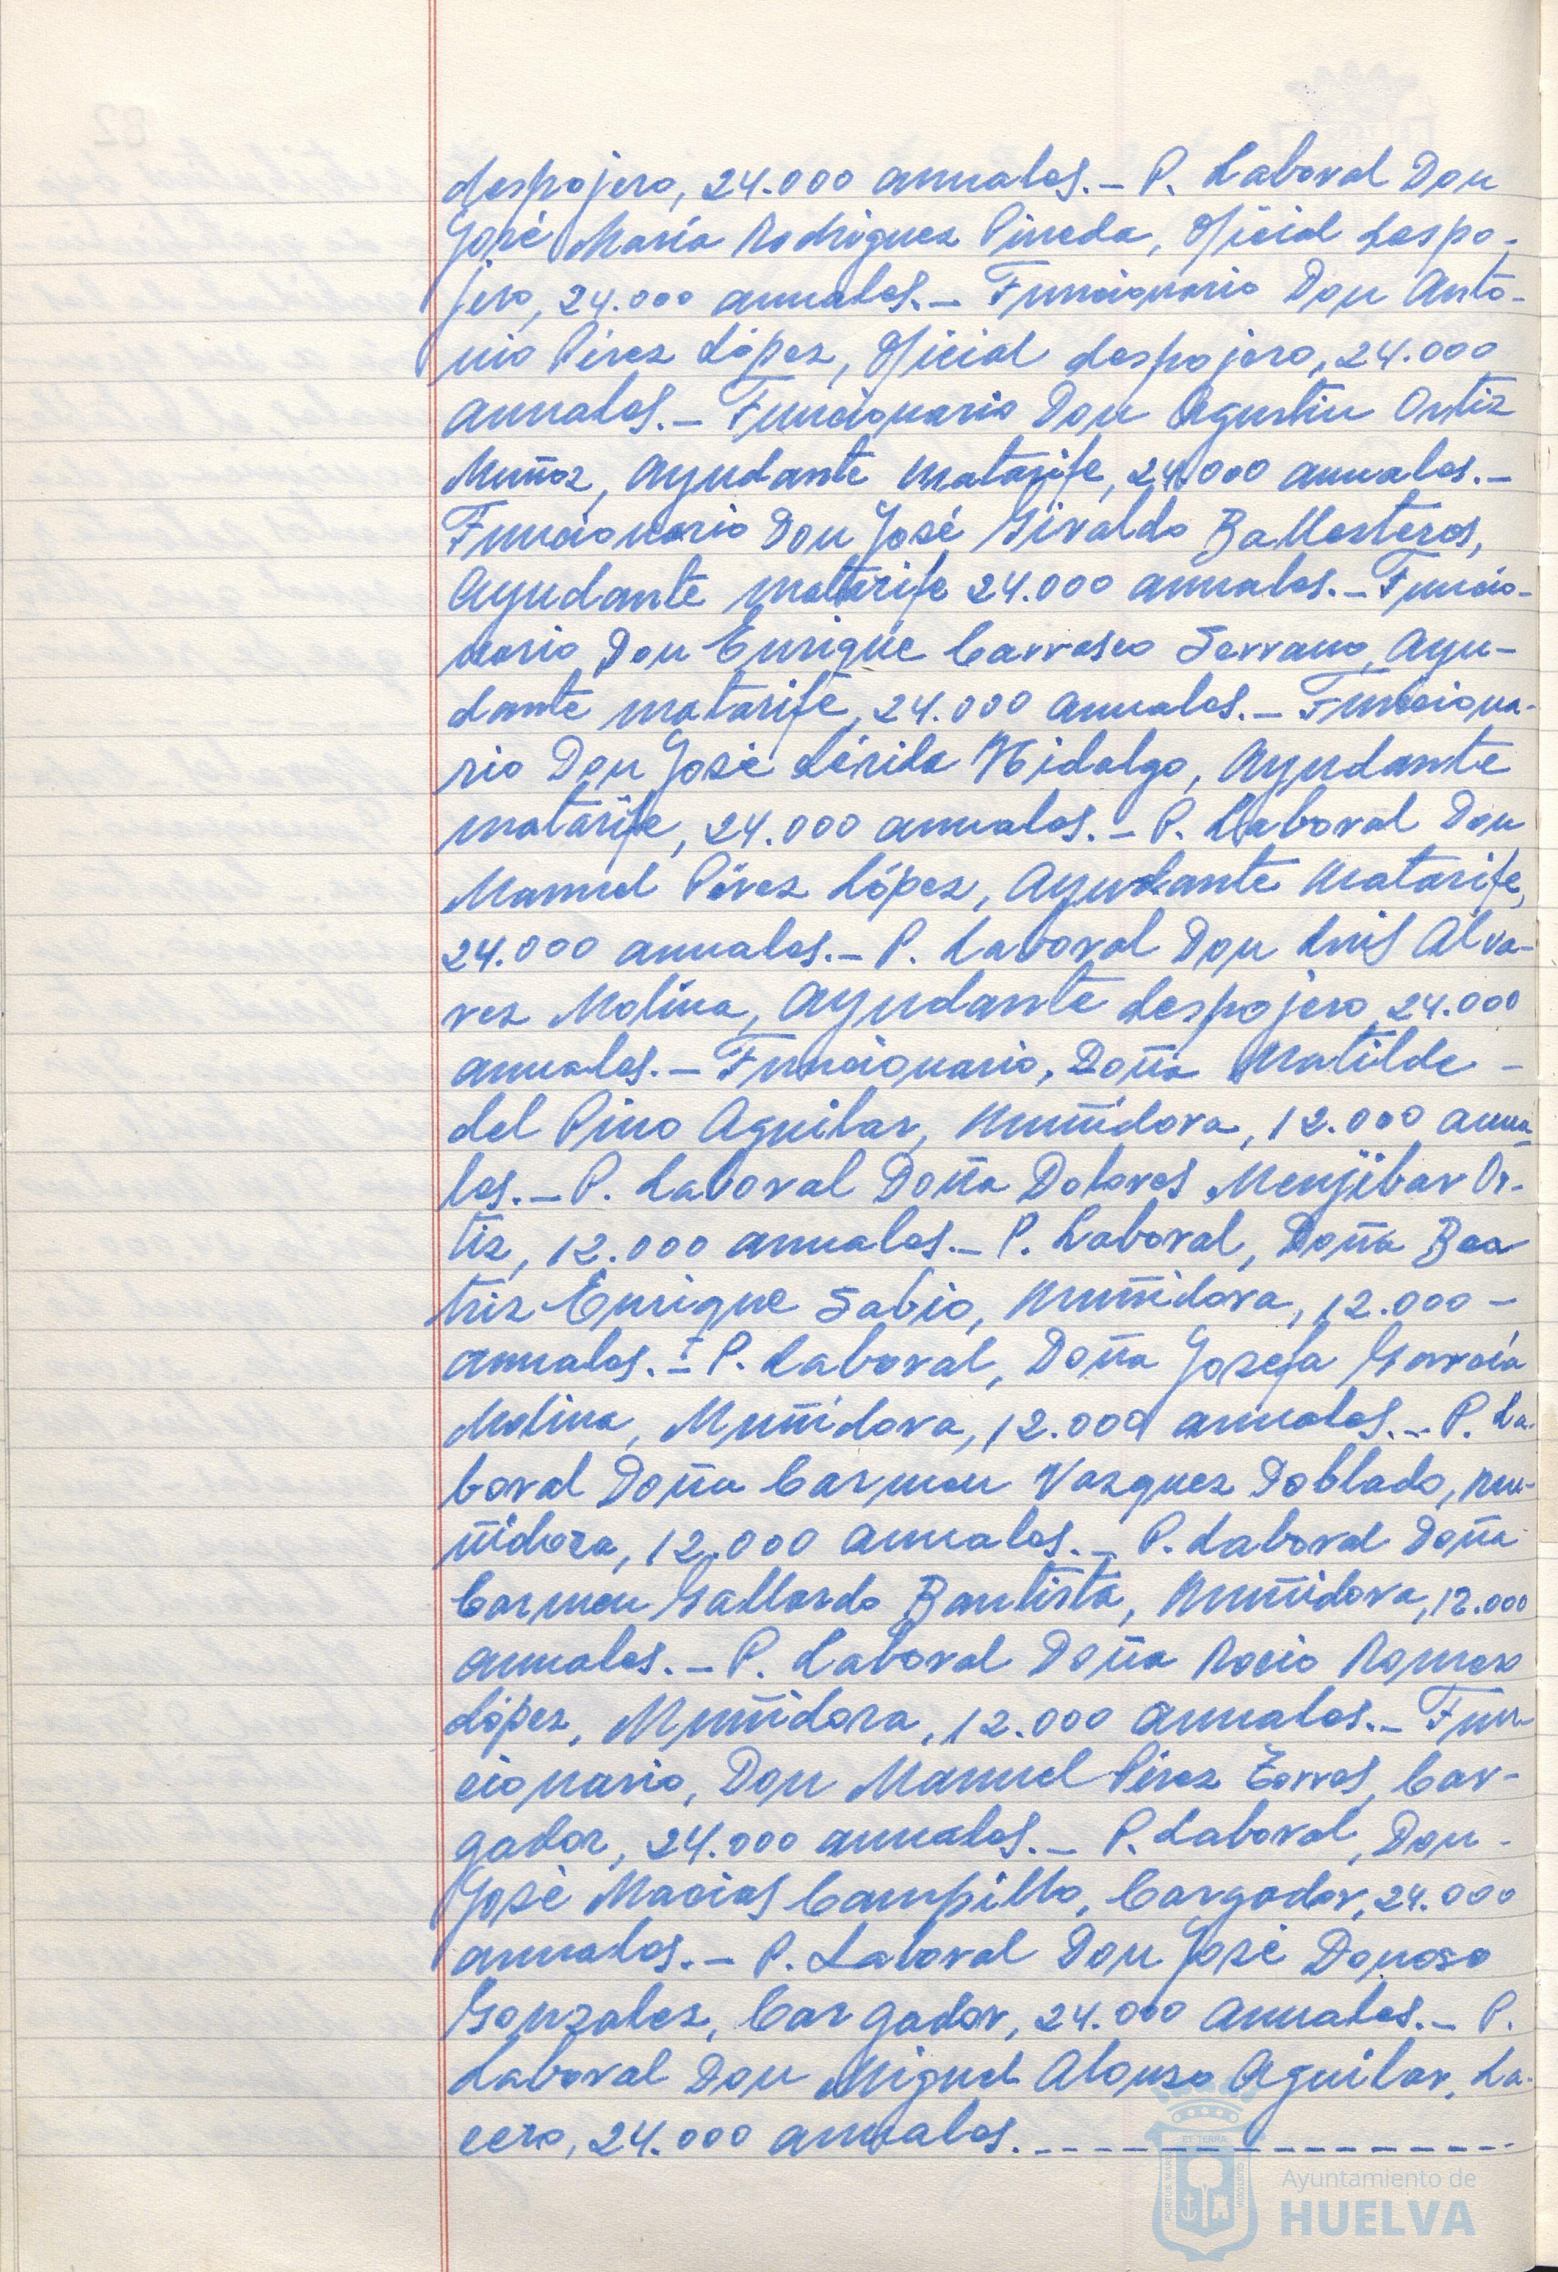 despojero, 24.000 anuales.- P. Laboral Don
José María Rodriguez Pineda, Oficial despo-
jero, 24.000 anuales.- Funcionario Don Anto-
nio Pérez López, Oficial despojero, 24.000
anuales.- Funcionario Don Agustin Ortiz
Muñoz, Ayudante matarife, 24.000 anuales.-
Funcionario Don José Giraldo Ballesteros,
Ayudante matarife 24.000 anuales.- Funcio-
nario Don Enrique Carrasco Serrano, Ayu-
dante matarife, 24.000 anuales.- Funciona-
rio Don José Lérida Hidalgo, Ayudante
matarife, 24.000 anuales.- P. Laboral Don
Manuel Pérez López, Ayudante Matarife,
24.000 anuales.- P. Laboral Don Luis Alva-
rez Molina, Ayudante despojero, 24.000
anuales.- Funcionario, Doña Matilde -
del Pino Aguilar, Muñidora, 12.000 anua
les.- P. Laboral Doña Dolores Menjibar Or-
tiz, 12.000 anuales.- P. Laboral, Doña Bea
triz Enrique Sabio, Muñidora, 12.000 -
anuales.- P. Laboral, Doña Josefa Garcia
Molina, Muñidora, 12.000 anuales.- P. La-
boral Doña Carmen Vazquez Doblado, mu-
ñidora, 12.000 anuales.- P. Laboral Doña
Carmen Gallardo Bautista, Muñidora, 12.000
anuales.- P. Laboral Doña Rocio Romero
López, Muñidora, 12.000 anuales.- Fun-
cionario, Don Manuel Pérez Torres, Car-
gador, 24.000 anuales.- P. Laboral, Don -
José Macias Campillo, Cargador, 24.000
anuales.- P. Laboral Don José Donoso
Gonzalez, Cargador, 24.000 anuales.- P.
Laboral Don Miguel Alonso Aguilar, La-
cero, 24.000 anuales.- - - - - - - - - - - -
Ayuntamiento de
HUELVA